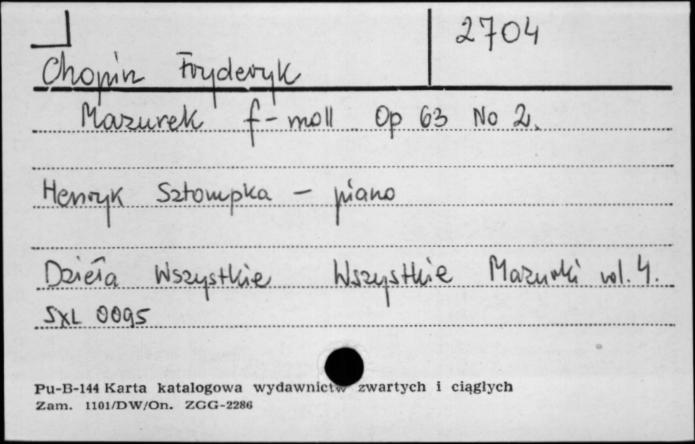 2704
Chopin Fryderyk
Mazurek f-moll Op 63 No 2.
Henryk Sztompka - piano
Dzieła Wszystkie Wszystkie Mazurki vol. 4.
SXL 0095
Pu-B-144 Karta katalogowa wydawnictw zwartych i ciągłych
Zam. 1101/DW/On. ZGG-2286